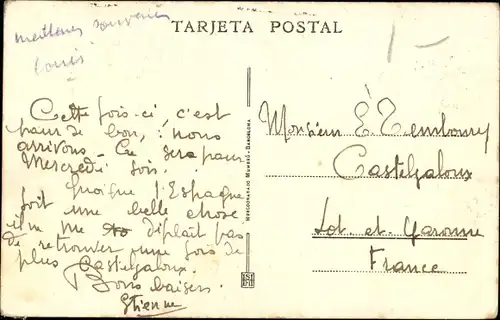 TARJETA POSTAL
meilleurs souvenirs
Louis
1-
Cette fois-ci, c'est
pour de bon, : nous
arrivons. Ce sera pour
Mercredi soir.
Quoique l'Espagne
soit une belle chose
il ne me déplait pas
de retrouver une fois de
plus Castelgaloux.
Bons baisers
Etienne
HUECOGRABADO MUMBRÚ-BARCELONA
Monsieur E.
Castelgaloux
Lot et Garonne
France